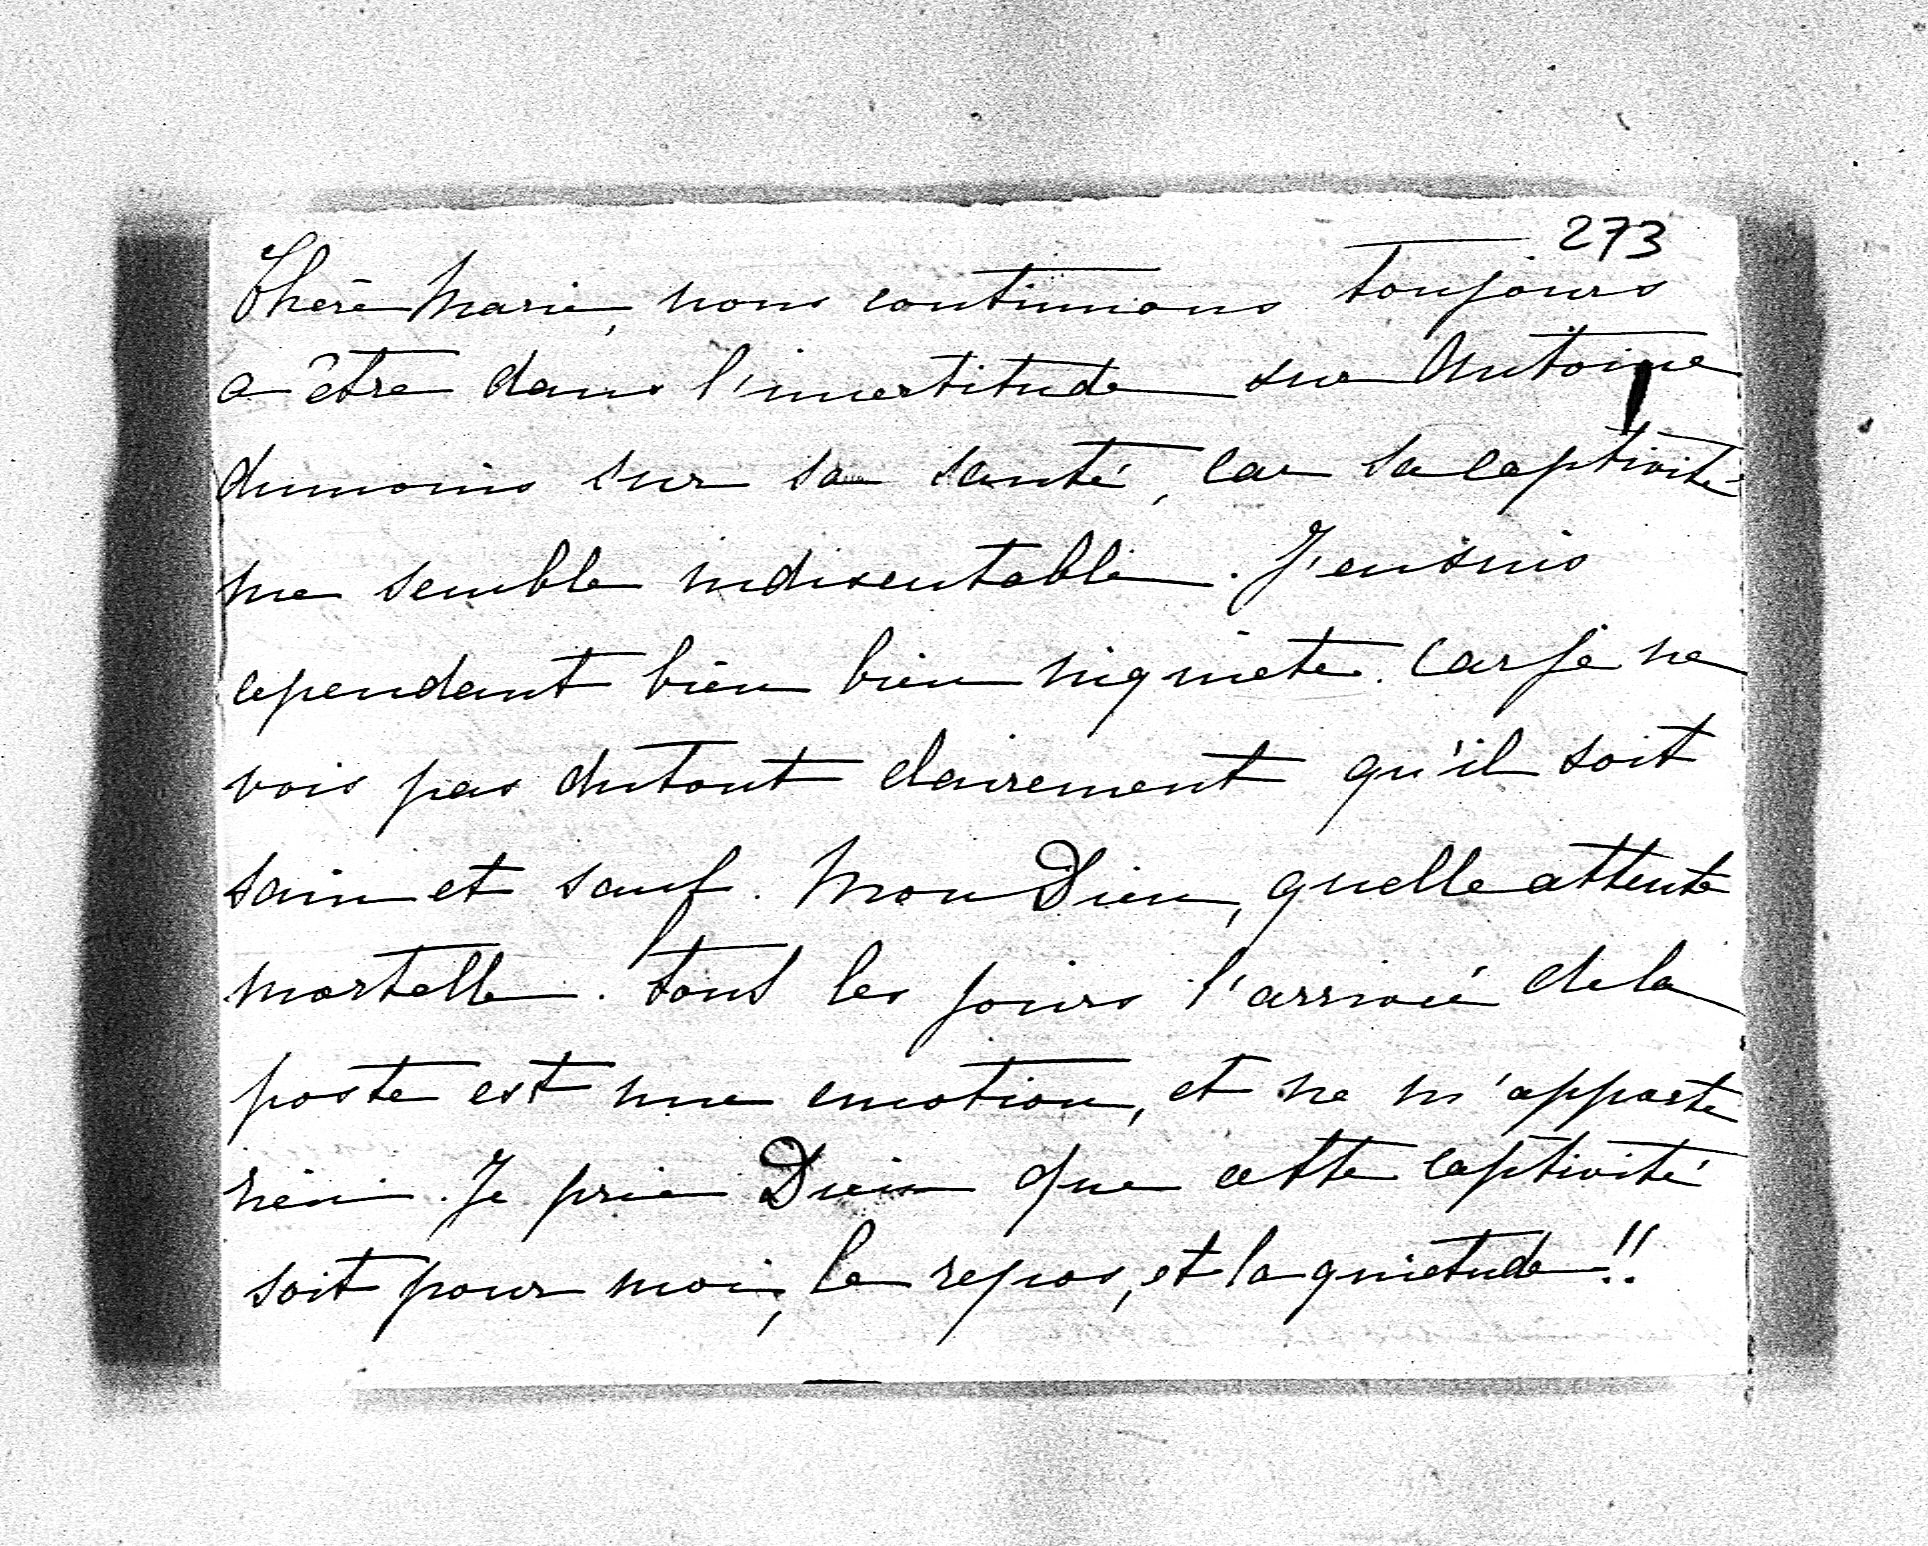 273
Chère Marie, nous continuons toujours
a être dans l'incertitude sur Antoine
dumoins sur sa santé, car sa captivité
me semble indiscutable. J'en suis
cependant bien bien inquiete. Car je ne
vois pas dutout clairement qu'il soit
sain et sauf. Mon Dieu, quelle attente
mortelle. Tous les jours l'arrivée de la
poste est une emotion, et ne m'apporte
rien. Je prie Dieu que cette captivité
soit pour moi, le repos, et la quietude!!